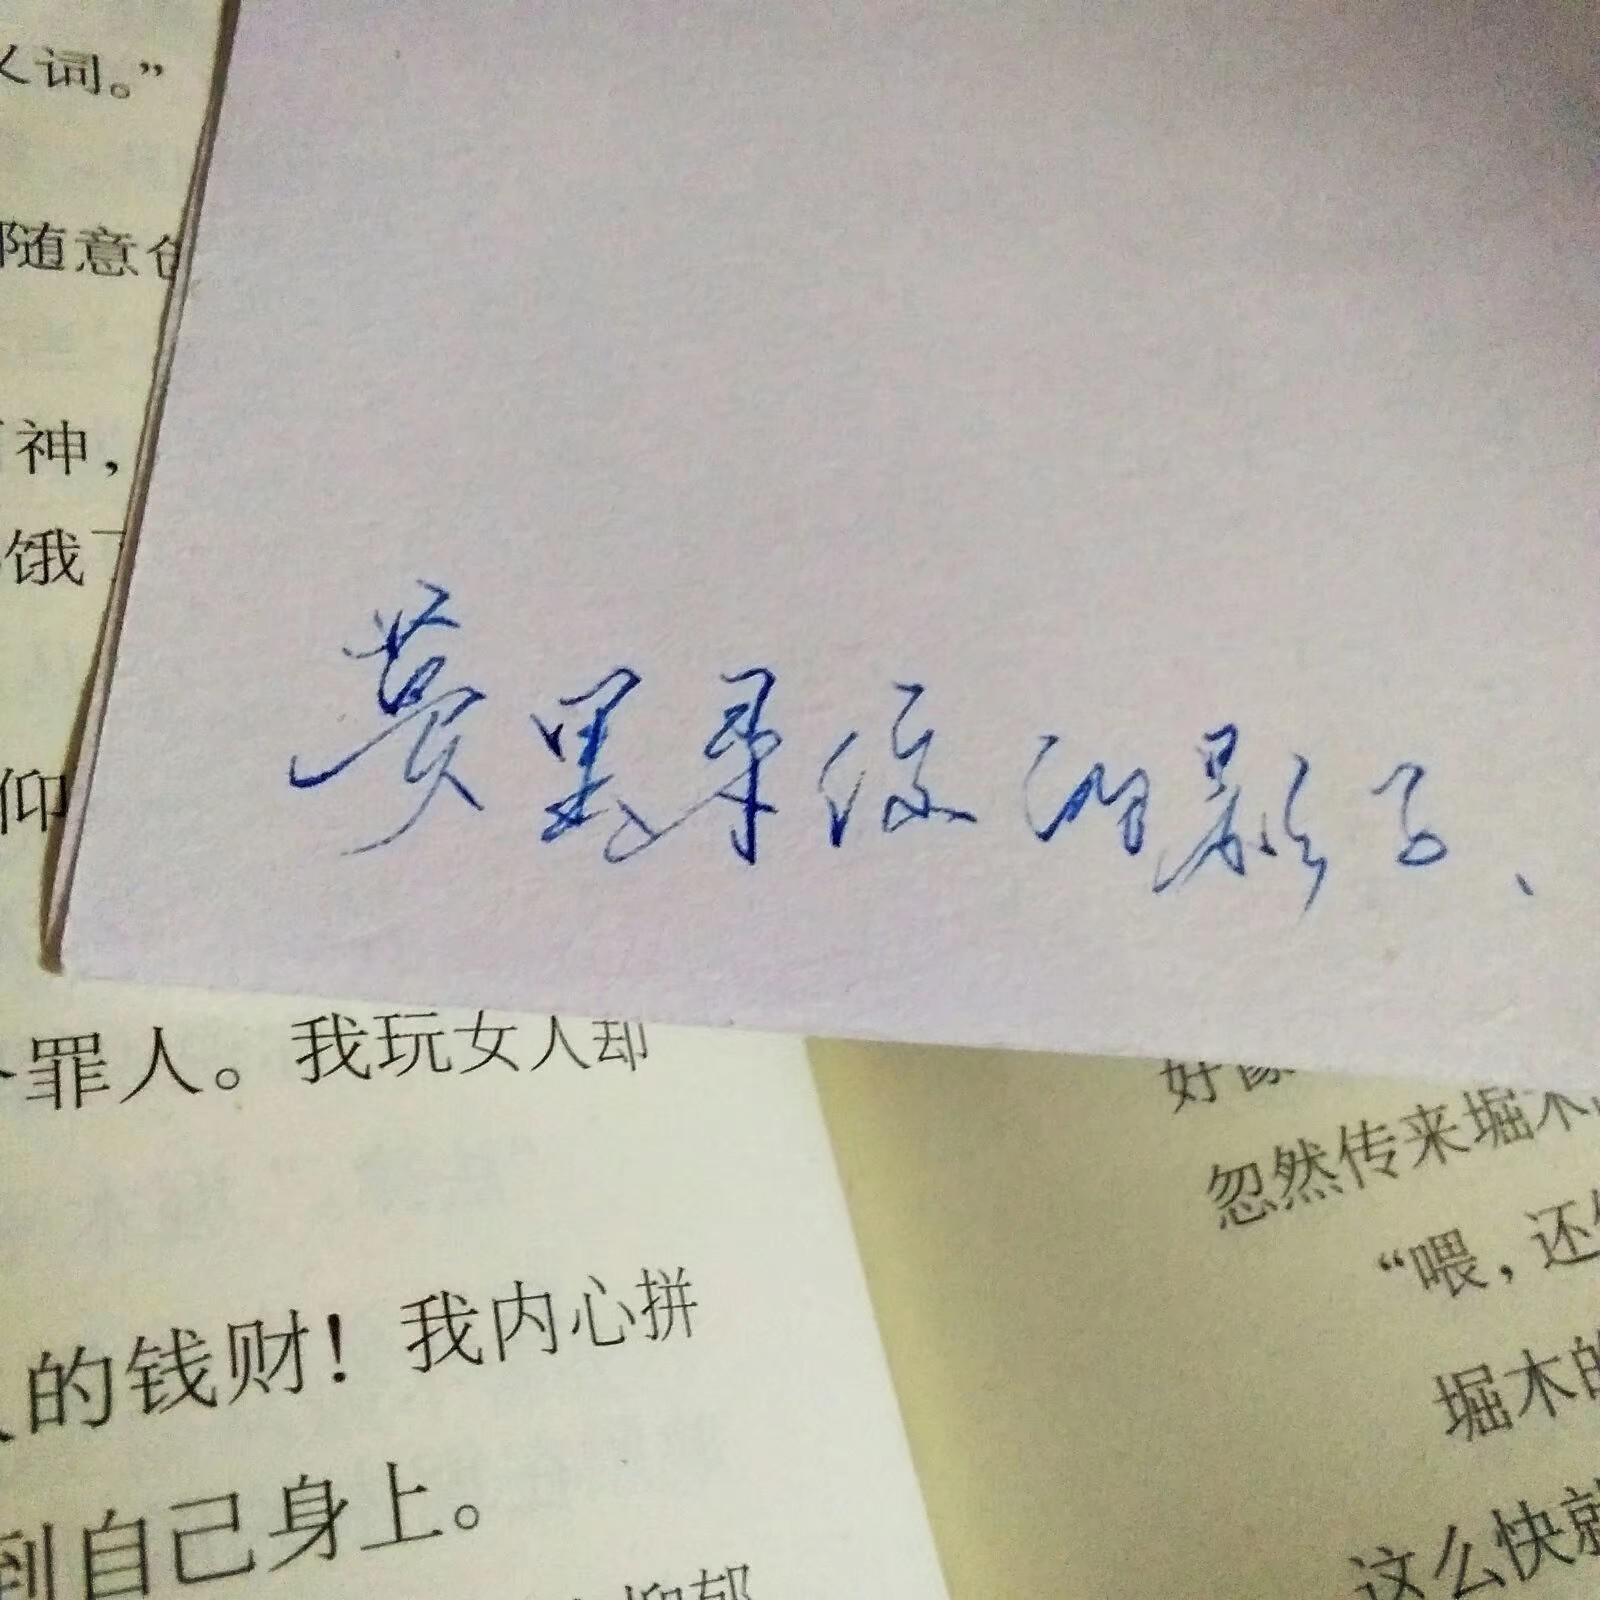 义词。”
随意
神，
饿
仰
梦里寻你的影子、
罪人。我玩女人却
的钱财！我内心拼
到自己身上。
好像
忽然传来堀木
“喂，还
堀木的
这么快就